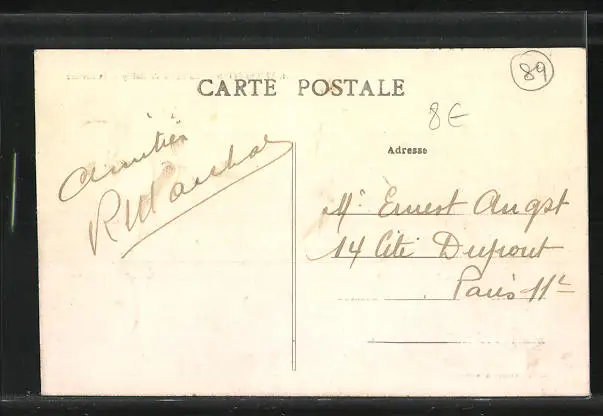 CARTE POSTALE
89
8€
Adresse
Amitiés
R Marchal
Mr Ernest Angst
14 Cité Dupont
Paris 11e